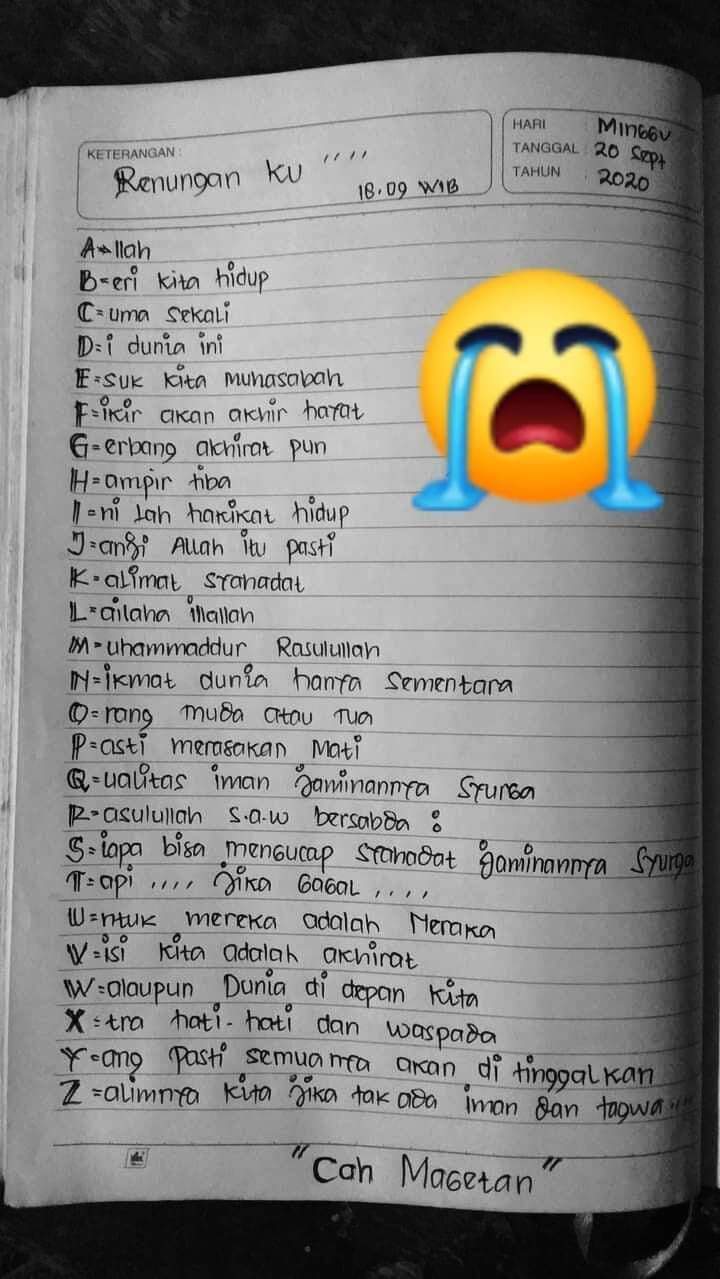 KETERANGAN :
Renungan ku ''''
18.09 WIB
HARI Minggu
TANGGAL : 20 Sept
TAHUN : 2020
A=llah
B=eri kita hidup
C=uma sekali
D=i dunia ini
E=suk kita muhasabah
F=ikir akan akhir hayat
G=erbang akhirat pun
H=ampir tiba
I=ni lah hakikat hidup
J=anji Allah itu pasti
K=alimat syahadat
L=ailaha illallah
M=uhammaddur Rasulullah
N=ikmat dunia hanya sementara
O=rang muda atau tua
P=asti merasakan Mati
Q=ualitas iman jaminannya Syurga
R=asulullah s.a.w bersabda :
S=iapa bisa mengucap syahadat jaminannya Syurga
T=api ,,,, jika gagal ,,,,
U=ntuk mereka adalah Neraka
V=isi kita adalah akhirat
W=alaupun Dunia di depan kita
X=tra hati-hati dan waspada
Y=ang pasti semuanya akan di tinggalkan
Z=alimnya kita jika tak ada iman dan taqwa....
"Cah Magetan"